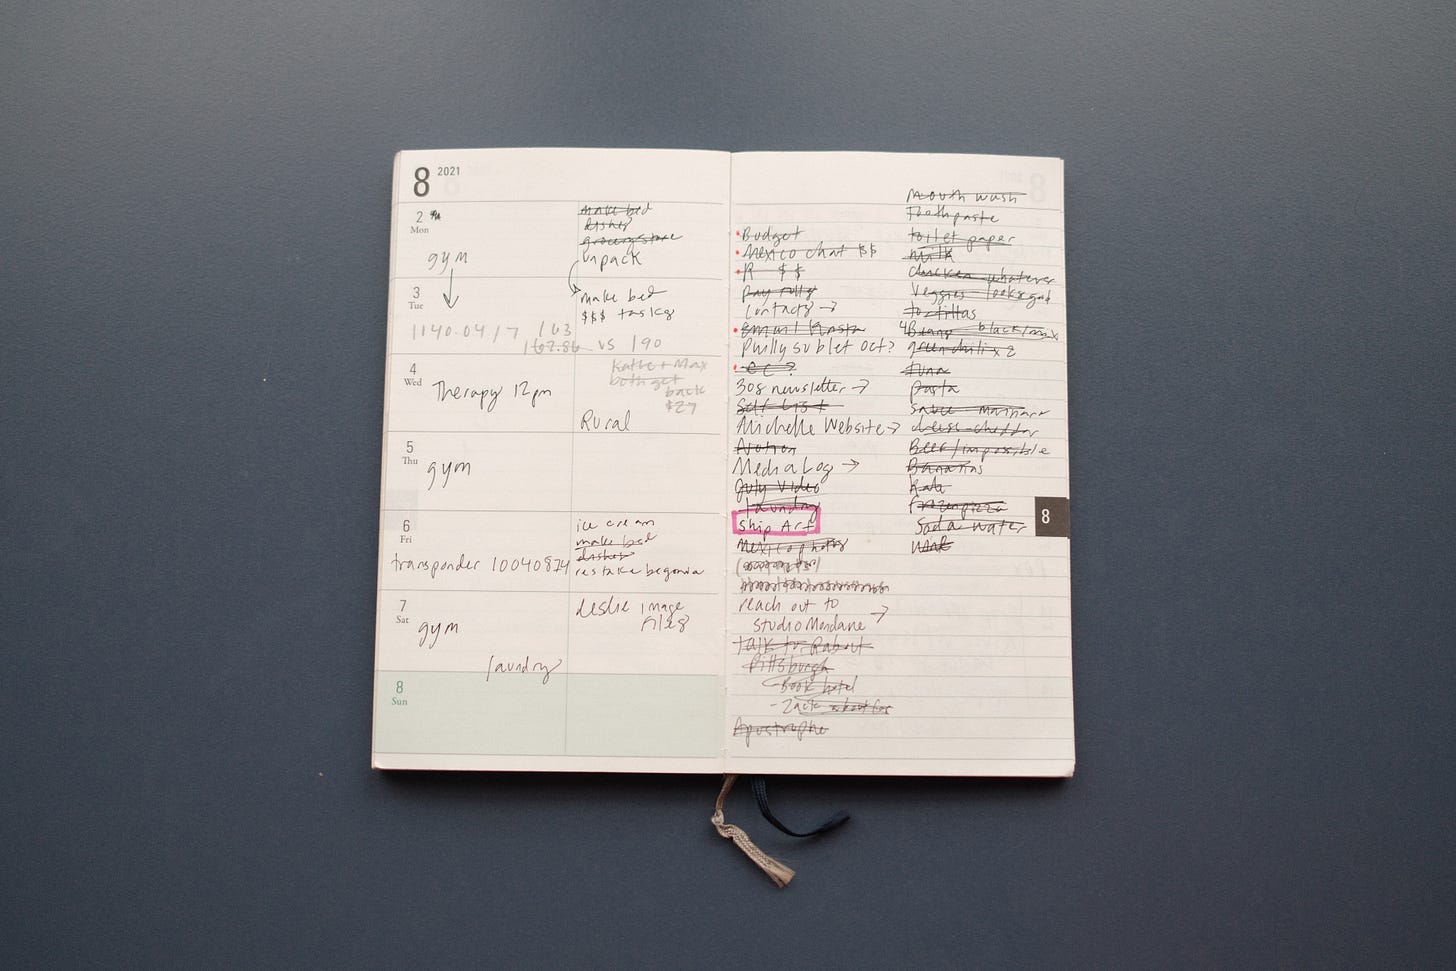 8 2021
2
Mon
gym
make bed
dishes
grocery store
unpack
3
Tue
make bed
$$$ tasks
1140.04/7 163
162.86 vs 190
4
Wed
Therapy 12pm
Katie + Max
both get
back
$27
Rural
5
Thu
gym
6
Fri
transponder 10040874
ice cream
make bed
dishes
restake begonia
7
Sat
gym
laundry
leslie image
files
8
Sun
Budget
Mexico chat $$
R $$
pay tolls
Contacts →
email
Philly sublet oct?
cc?
308 newsletter →
Self List
Michelle Website →
Media Log →
July Video
laundry
Ship Art
Mexico photos
reach out to
studio Mondane →
talk to Rabbit
Pittsburgh
- Book hotel
- Zach about car
Apostrophe
mouth wash
toothpaste
toilet paper
milk
chicken whatever
Veggies - looks good
tortillas
4 Beans black/mix
green chili x 2
tuna
pasta
sauce marinara
cheese - cheddar
Beef/impossible
Bananas
Kale
frozen pizza
Soda water
8